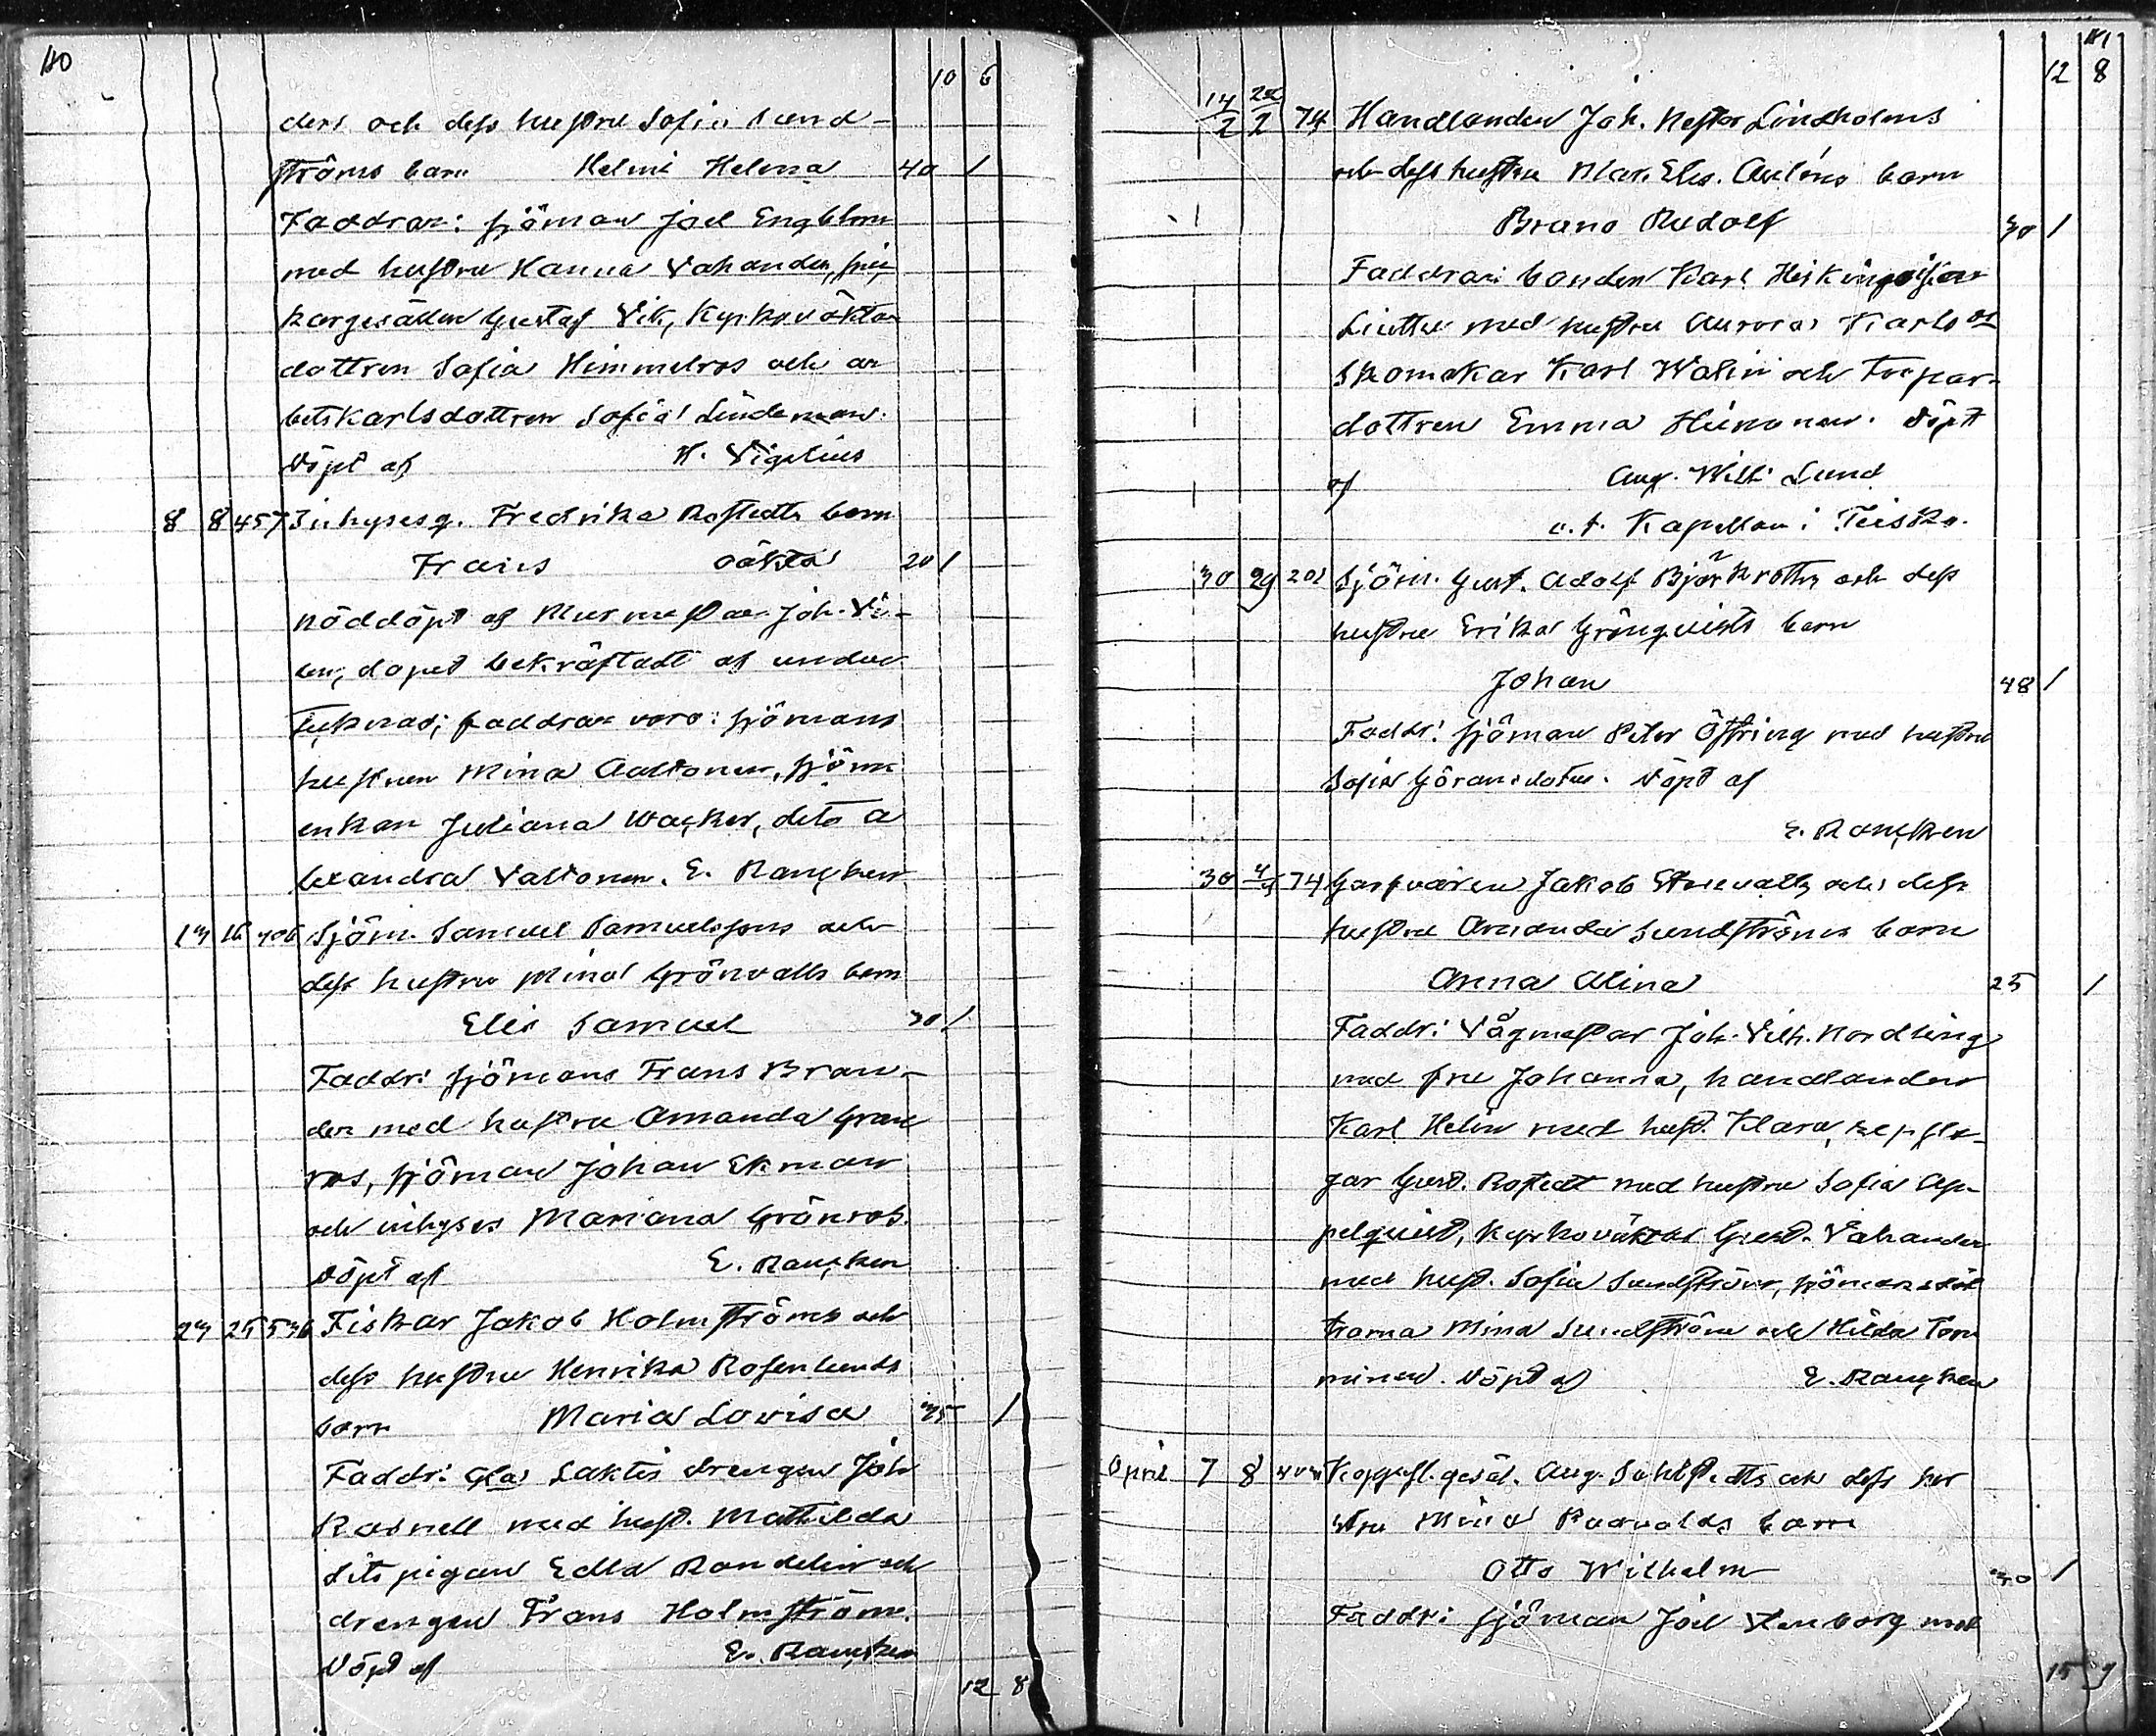 110
10 6
ders och dess hustru Sofia Sund-
ströms barn Helmi Helena 40 1
Faddrar: sjöman Joel Engblom
med hustru Hanna Vahander, sni-
karegesällen Gustaf Vik, Kyrkoväktar
dottren Sofia Himmelros och ar-
betskarlsdottren Sofia Lindeman.
Döpt af K. Vigelius
8 8 457 Inhyses q. Fredrika Rostedts barn
Frans oäkta 20 1
nöddöpt af Murmästar Joh. Vi-
den, dopet bekräftadt af undar
tecknad; faddrar voro: sjömans
hustrun Mina Aaltonen, sjöm.
enkan Juliana Wacker, dito A
lexandra Valtonen. E. Rancken
13 16 406 Sjöm. Samuel Samuelssons och
dess hustru Mina Grönvalls barn
Elis Samuel 30 1
Faddr: sjömans Frans Bran-
der med hustru Amanda Gran
ros, sjöman Johan Ekman
och inhyses Mariana Grönros.
Döpt af E. Rancken
23 25 536 Fiskar Jakob Holmströms och
dess hustru Henrika Rosenlunds
barn Maria Lovisa 35 1
Faddr: Saktis drengen Joh
Rasnell med hust. Mathilda
dito pigan Edla Randelin och
drengen Frans Holmström.
Döpt af E. Rancken
12 8
111
12 8
14/2 22/2 74 Handlanden Joh. Nestor Lindholms
och dess hustru Mar. Elis. Axléns barn
Bruno Rudolf 30 1
Faddrar: bonden Karl
med hustru Aurora Karls
Skomakar Karl Walin och Torpar-
dottren Emma Heinonen. Döpt
af Aug. Wilh. Lund
v. t. Kapellan i Teisko.
30 29 201 Sjöm. Gust. Adolf Björkroths och dess
hustru Erika Grönqvists barn
Johan 48 1
Faddr: sjöman Peter Östring med hustru
Sofia Göransdotter. Döpt af
E. Rancken
30 4/4 74 Garfvaren Jakob Stenvalls och dess
hustru Amanda Sundströms barn
Anna Alina 25 1
Faddr: Vågmästar Joh. Vilh. Nordling
med fru Johanna, handlanden
Karl Helin med hust. Klara, repsla-
gar Gust. Rostedt med hustru Sofia Ap-
pelqvist, Kyrkoväktar Gust. Vahander
med hust. Sofia Sundström, sjömansdöt
trarna Mina Sundström och Hilda Tom
minen. Döpt af E. Rancken
April 7 8 403 Kopparsl. gesäl. Aug. Sahlstedts och dess hu
stru Mina Roosvalds barn
Otto Wilhelm 30 1
Faddr: sjöman Joel Stenborg med
15 9